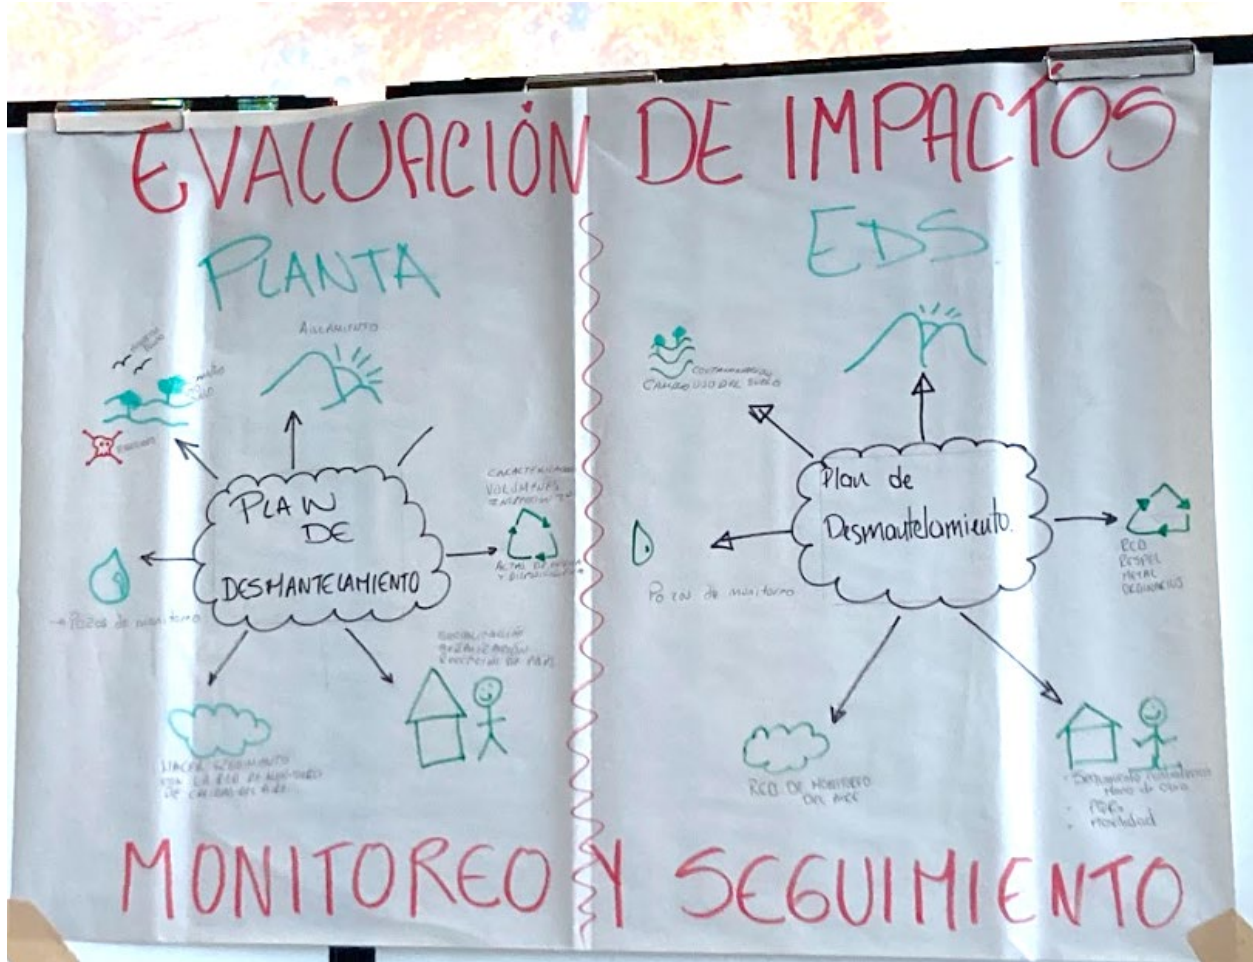 EVALUACIÓN DE IMPACTOS
PLANTA
AISLAMIENTO
CARACTERIZACIÓN
VOLUMENES
PLAN
DE
DESMANTELAMIENTO
→ Pozos de monitoreo
SOCIALIZACIÓN
HACER SEGUIMIENTO
CON LA RED DE MONITOREO
DE CALIDAD DEL AIRE
EDS
CONTAMINACIÓN
CAMBIO USO DEL SUELO
Plan de
Desmantelamiento.
RCD
RESPEL
METAL
ORDINARIOS
Pozos de monitoreo
RED DE MONITOREO
DEL AIRE
· Seguimiento
Mano de Obra
· PQRs
· Movilidad
MONITOREO Y SEGUIMIENTO